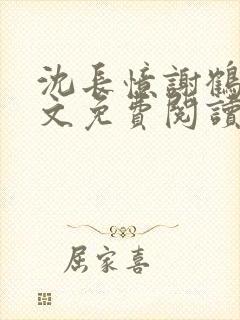 沈長憶謝鶴
文免費閱讀
屈家喜